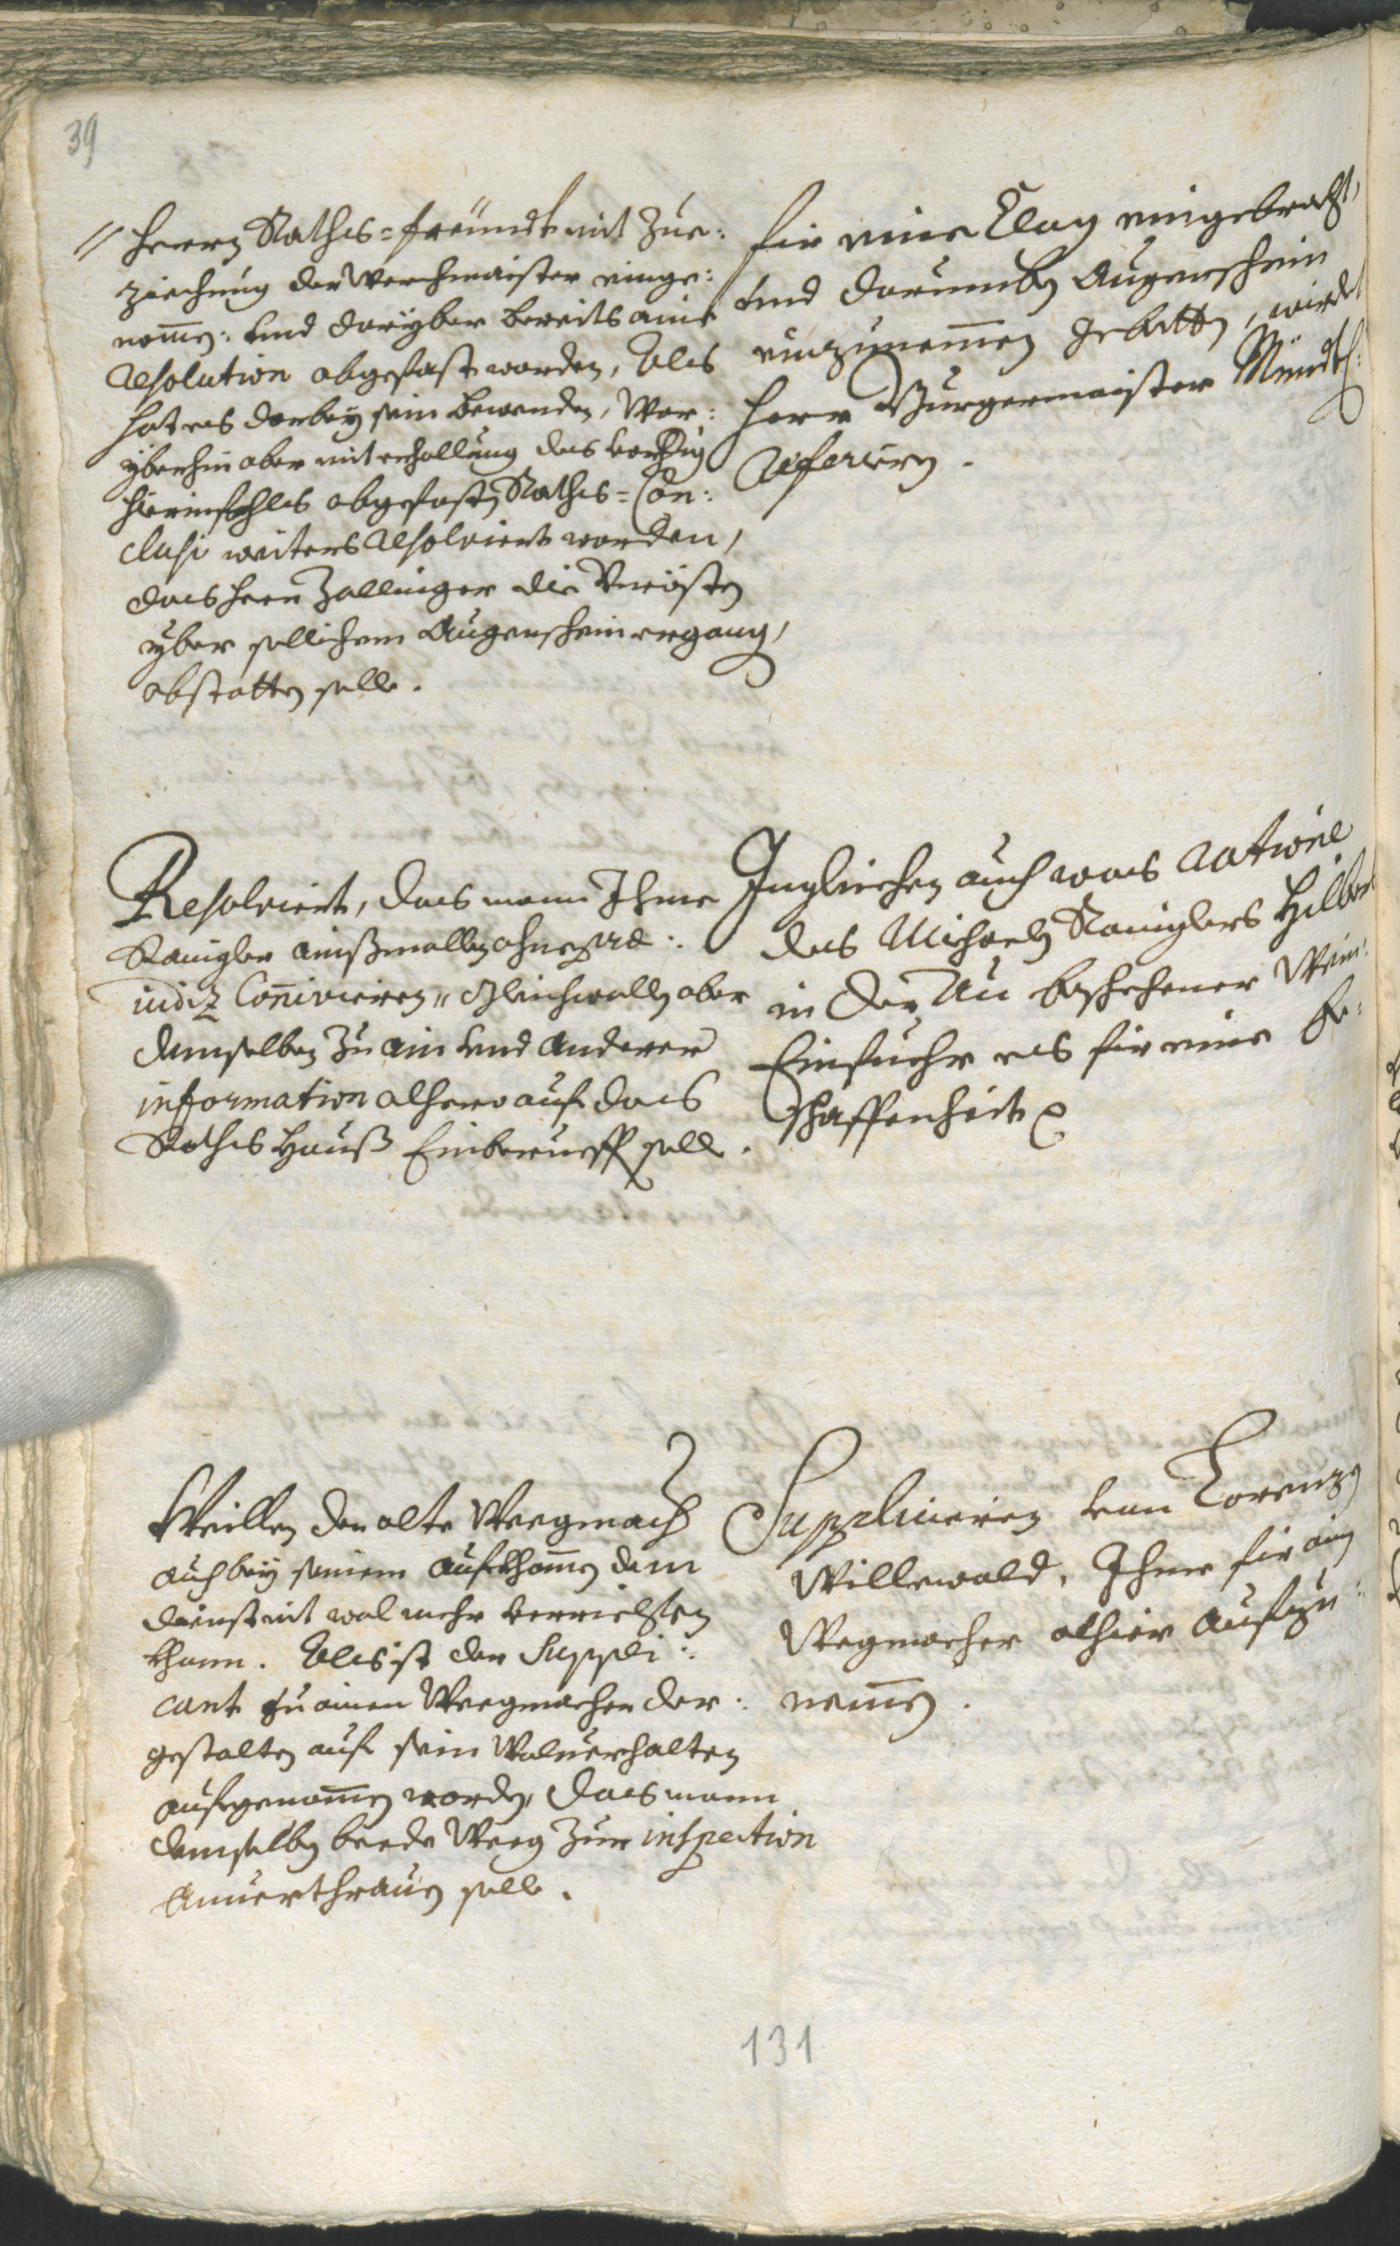 39
// Herrn Rathes=freundt mit Zue:
ziechung der Werchmaister einge:
nom̄en: und daryber bereits aine
Resolution abgefast worden, Als
hat es darbey sein bewenden, Wor:
yberhin aber mit erhollung des vorig
hierinfahls abgefasten Rathes=Con:
clusi weiters Resolviert worden,
das Herr Zallinger die Vncosten
yber sollichem Augenschein ergang,
abstatten solle.
fir eine Clag eingebracht,
und darumben Augenschein
einzunem̄en gebetten, wirdt
Herr Burgermaister Mündtl:
Referiern.
Resolviert, das mann Ihme
Ranigler ainßmallen ohne præ:
iudiz Con̄ivieren, Gleichwollen aber
demselben zu ain und anderer
information alhero auf das
Rathes Hauß Einberueffen solle.
Ingleichen auch was ratione
des Michaeln Raniglers Hilber
in der Au beschehener Wein:
Einfuehr es fir eine Be:
schaffenheit
Weillen der alte Weegmach
auch bey seinem aufkhom̄en dem
dienst nit wol mehr verrichten
khann. Als ist der Suppli:
cant zu ainen Weegmacher der:
gestalten auf sein Wolverhalten
aufgenom̄en worden, das mann
demselben beede Weeg zur inspection
Anverthrauen solle.
Supplicieren von Lorenz
Willewald, Ihme fir ain
Wegmacher alhier aufzu:
nem̄en.
131